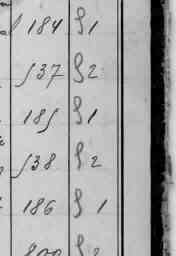 184 § 1
537 § 2
185 § 1
538 § 2
186 § 1
§ 2